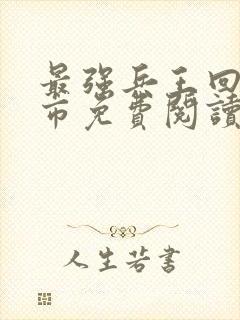 最强兵王回
市免費閱讀
人生若書